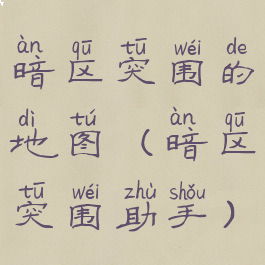 àn qū tū wéi de
暗区突围的
dì tú àn qū
地图（暗区
tū wéi zhù shǒu
突围助手）